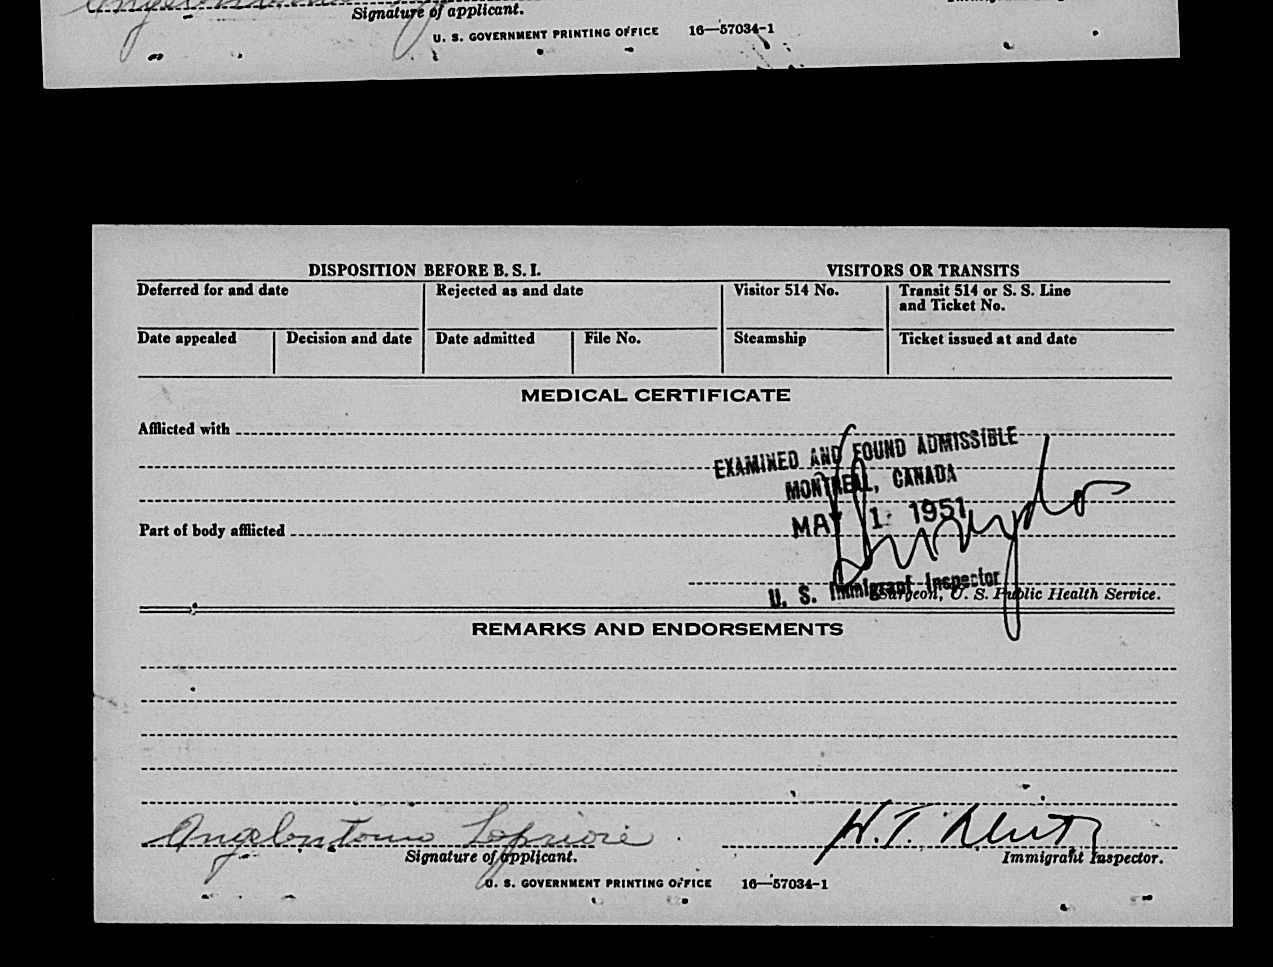 Signature of applicant.
U. S. GOVERNMENT PRINTING OFFICE 16—57034-1
DISPOSITION BEFORE B. S. I.
VISITORS OR TRANSITS
Deferred for and date
Rejected as and date
Visitor 514 No.
Transit 514 or S. S. Line
and Ticket No.
Date appealed
Decision and date
Date admitted
File No.
Steamship
Ticket issued at and date
MEDICAL CERTIFICATE
Afflicted with
EXAMINED AND FOUND ADMISSIBLE
MONTREAL, CANADA
MAY 1 1951
Part of body afflicted
U. S. Immigrant Inspector
Surgeon, U. S. Public Health Service.
REMARKS AND ENDORSEMENTS
Angelantonio Lopriore
W. T.
Signature of applicant.
Immigrant Inspector.
U. S. GOVERNMENT PRINTING OFFICE 16—57034-1